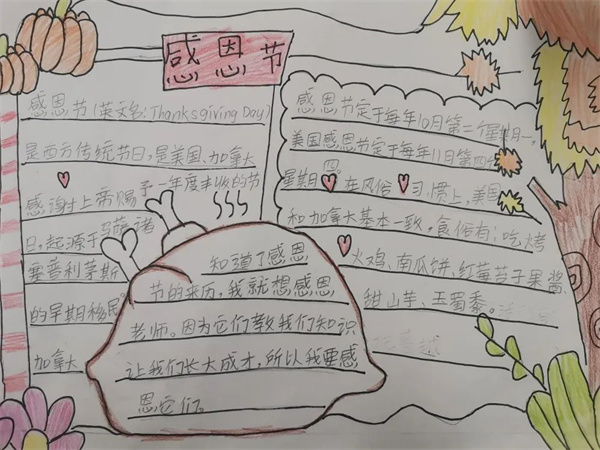 感恩节
感恩节(英文名:Thanksgiving Day)
是西方传统节日,是美国、加拿大
感谢上帝赐予一年度丰收的节
日,起源于马萨诸
塞普利茅斯
的早期移民。
加拿大
感恩节定于每年10月第二个星期一,
美国感恩节定于每年11月第四个
星期四。在风俗习惯上,美国
和加拿大基本一致,食俗有:吃烤
火鸡、南瓜饼、红莓苔子果酱、
甜山芋、玉蜀黍。
知道了感恩
节的来历,我就想感恩
老师。因为它们教我们知识
让我们长大成才,所以我要感
恩它们。